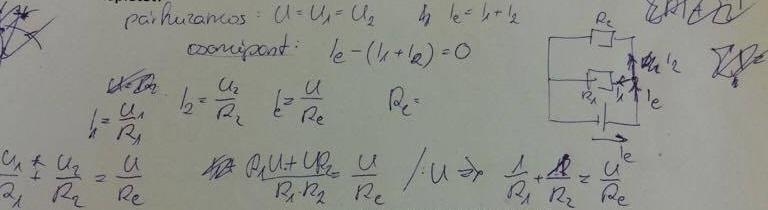 párhuzamos: U = U₁ = U₂ Ie = I₁ + I₂
csomópont: Ie - (I₁ + I₂) = 0
I₁ = U₁/R₁ I₂ = U₂/R₂ Ie = U/Re Re =
U₁/R₁ + U₂/R₂ = U/Re R₁U + UR₂/R₁·R₂ = U/Re /:U ⇒ 1/R₁ + 1/R₂ = U/Re
R₂
I₂
R₁ I₁
Ie
Ie